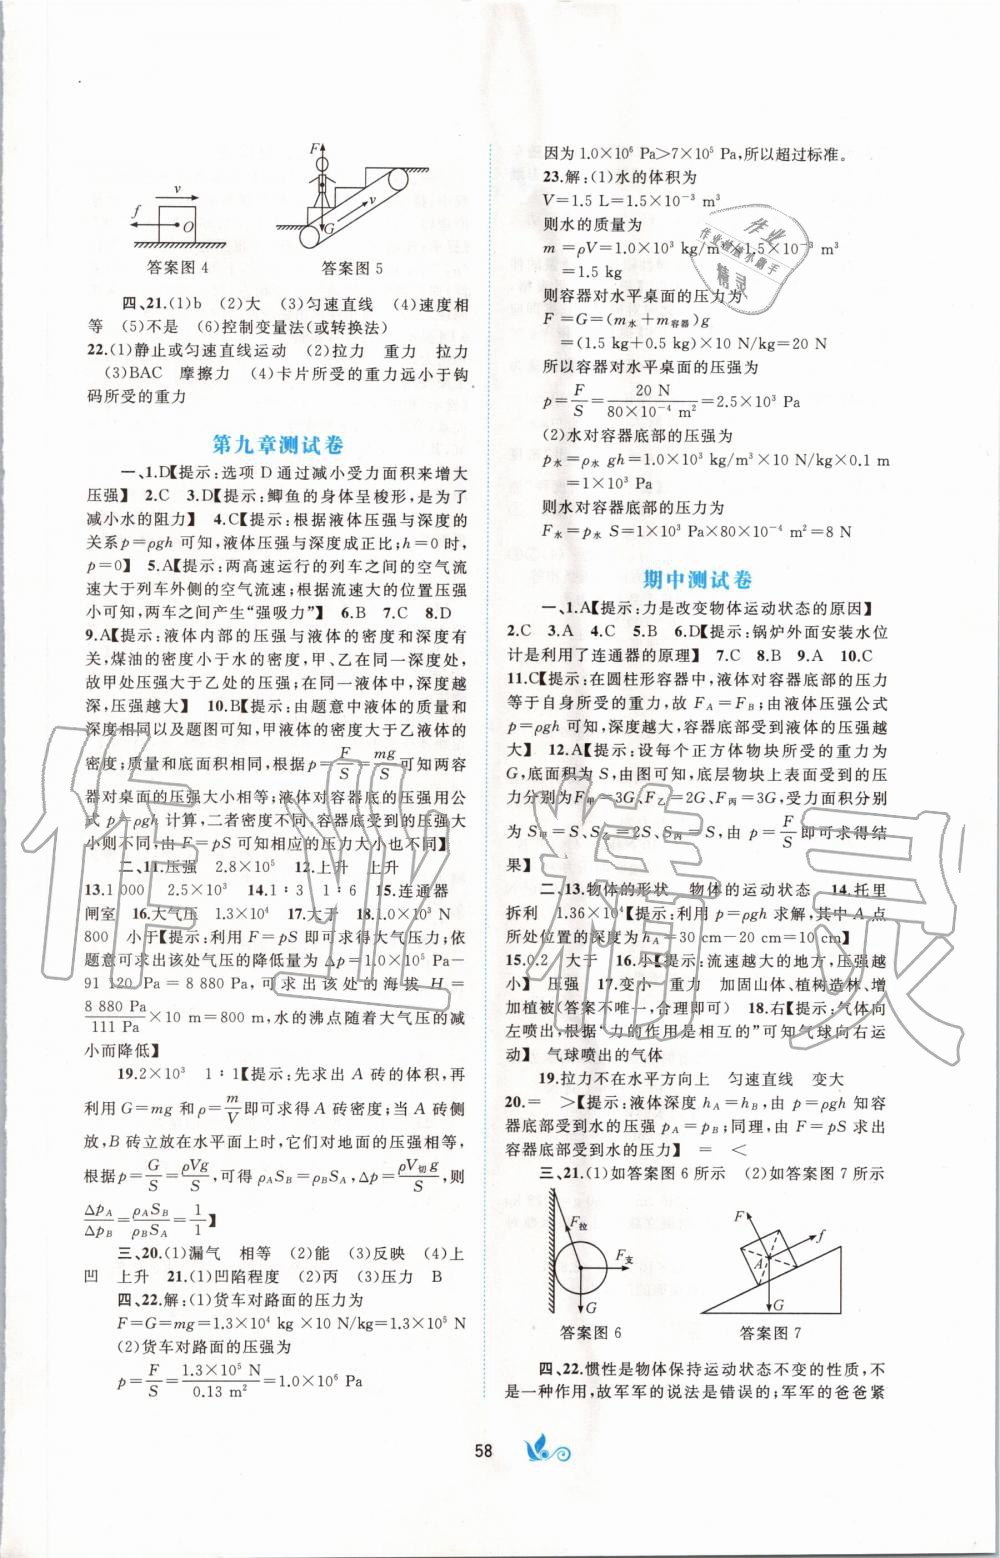 F
v
v
f
O
G
答案图 4
答案图 5
四、21.(1)b　(2)大　(3)匀速直线　(4)速度相
等　(5)不是　(6)控制变量法(或转换法)
22.(1)静止或匀速直线运动　(2)拉力　重力　拉力
(3)BAC　摩擦力　(4)卡片所受的重力远小于钩
码所受的重力
第九章测试卷
一、1.D【提示:选项 D 通过减小受力面积来增大
压强】　2.C　3.D【提示:鲫鱼的身体呈梭形,是为了
减小水的阻力】　4.C【提示:根据液体压强与深度的
关系 p=ρgh 可知,液体压强与深度成正比;h=0 时,
p=0】　5.A【提示:两高速运行的列车之间的空气流
速大于列车外侧的空气流速;根据流速大的位置压强
小可知,两车之间产生“强吸力”】　6.B　7.C　8.D
9.A【提示:液体内部的压强与液体的密度和深度有
关,煤油的密度小于水的密度,甲、乙在同一深度处,
故甲处压强大于乙处的压强;在同一液体中,深度越
深,压强越大】　10.B【提示:由题意中液体的质量和
深度相同以及题图可知,甲液体的密度大于乙液体的
密度;质量和底面积相同,根据 p=F/S=mg/S 可知两容
器对桌面的压强大小相等;液体对容器底的压强用公
式 p=ρgh 计算,二者密度不同,容器底受到的压强大
小则不同;由 F=pS 可知相应的压力大小也不同】
二、11.压强　2.8×10⁵　12.上升　上升
13.1 000　2.5×10³　14.1∶3　1∶6　15.连通器
闸室　16.大气压　1.3×10⁴　17.大于　18.1.0×10³ N
800　小于【提示:利用 F=pS 即可求得大气压力;依
题意可求出该处气压的降低量为 Δp=1.0×10⁵ Pa−
91 120 Pa=8 880 Pa,可求出该处的海拔 H=
8 880 Pa/111 Pa×10 m=800 m,水的沸点随着大气压的减
小而降低】
19.2×10³　1∶1【提示:先求出 A 砖的体积,再
利用 G=mg 和 ρ=m/V 即可求得 A 砖密度;当 A 砖侧
放,B 砖立放在水平面上时,它们对地面的压强相等,
根据 p=G/S=ρVg/S,可得 ρASB=ρBSA,Δp=ρV切g/S,则
ΔpA/ΔpB=ρASB/ρBSA=1/1】
三、20.(1)漏气　相等　(2)能　(3)反映　(4)上
凹　上升　21.(1)凹陷程度　(2)丙　(3)压力　B
四、22.解:(1)货车对路面的压力为
F=G=mg=1.3×10⁴ kg ×10 N/kg=1.3×10⁵ N
(2)货车对路面的压强为
p=F/S=1.3×10⁵ N/0.13 m²=1.0×10⁶ Pa
因为 1.0×10⁶ Pa>7×10⁵ Pa,所以超过标准。
23.解:(1)水的体积为
V=1.5 L=1.5×10⁻³ m³
则水的质量为
m=ρV=1.0×10³ kg/m³×1.5×10⁻³ m³
=1.5 kg
则容器对水平桌面的压力为
F=G=(m水+m容器)g
=(1.5 kg+0.5 kg)×10 N/kg=20 N
所以容器对水平桌面的压强为
p=F/S=20 N/80×10⁻⁴ m²=2.5×10³ Pa
(2)水对容器底部的压强为
p水=ρ水 gh=1.0×10³ kg/m³×10 N/kg×0.1 m
=1×10³ Pa
则水对容器底部的压力为
F水=p水 S=1×10³ Pa×80×10⁻⁴ m²=8 N
期中测试卷
一、1.A【提示:力是改变物体运动状态的原因】
2.C　3.A　4.C　5.B　6.D【提示:锅炉外面安装水位
计是利用了连通器的原理】　7.C　8.B　9.A　10.C
11.C【提示:在圆柱形容器中,液体对容器底部的压力
等于自身所受的重力,故 FA=FB;由液体压强公式
p=ρgh 可知,深度越大,容器底部受到液体的压强越
大】　12.A【提示:设每个正方体物块所受的重力为
G,底面积为 S,由图可知,底层物块上表面受到的压
力分别为F甲=3G、F乙=2G、F丙=3G,受力面积分别
为 S甲=S、S乙=2S、S丙=S,由 p=F/S 即可求得结
果】
二、13.物体的形状　物体的运动状态　14.托里
拆利　1.36×10⁴【提示:利用 p=ρgh 求解,其中 A 点
所处位置的深度为 hA=30 cm−20 cm=10 cm】
15.0.2　大于　16.小【提示:流速越大的地方,压强越
小】　压强　17.变小　重力　加固山体、植树造林、增
加植被(答案不唯一,合理即可)　18.右【提示:气体向
左喷出,根据“力的作用是相互的”可知气球向右运
动】　气球喷出的气体
19.拉力不在水平方向上　匀速直线　变大
20.=　>【提示:液体深度 hA=hB,由 p=ρgh 知容
器底部受到水的压强 pA=pB;同理,由 F=pS 求出
容器底部受到水的压力】　=　<
三、21.(1)如答案图 6 所示　(2)如答案图 7 所示
F拉
F支
G
F
f
A
G
答案图 6
答案图 7
四、22.惯性是物体保持运动状态不变的性质,不
是一种作用,故军军的说法是错误的;军军的爸爸紧
58
作业精灵
作业
作业检查小助手
精灵